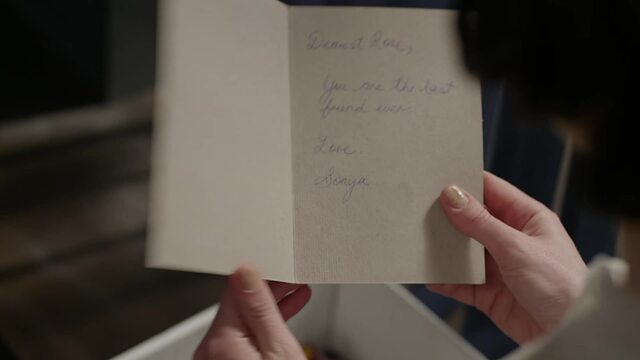 Dearest Rose,
You are the best
friend ever.
Love.
Sonya